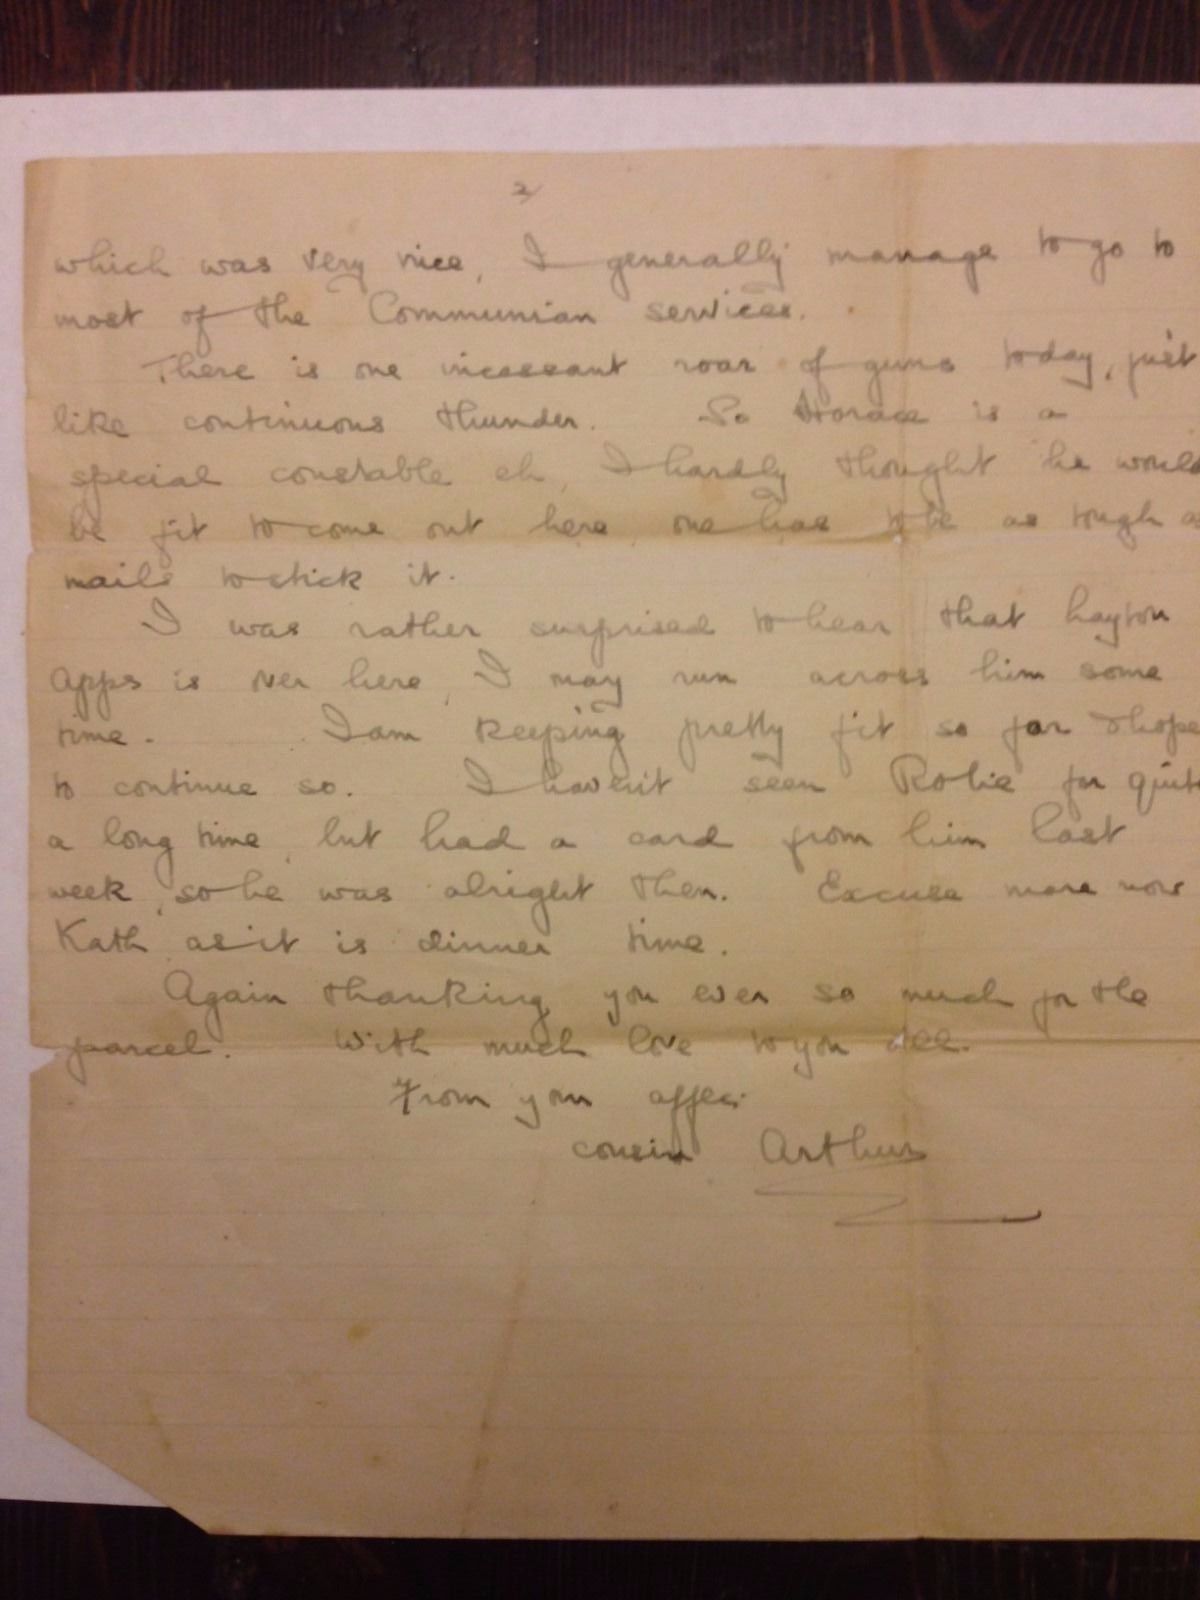 2/
which was very nice, I generally manage to go to
most of the Communian services.
There is one incessant roar of guns today, just
like continuous thunder. So Horace is a
special constable eh, I hardly thought he would
be fit to come out here, one has to be as tough a
nails to stick it.
I was rather surprised to hear that hayton
Apps is over here, I may run across him some
time. I am keeping pretty fit so far & hope
to continue so. I haven't seen Robie for quite
a long time, but had a card from him last
week, so he was alright then. Excuse more now
Kath as it is dinner time.
Again thanking you ever so much for the
parcel. With much love to you all.
From your affec:
cousin Arthur